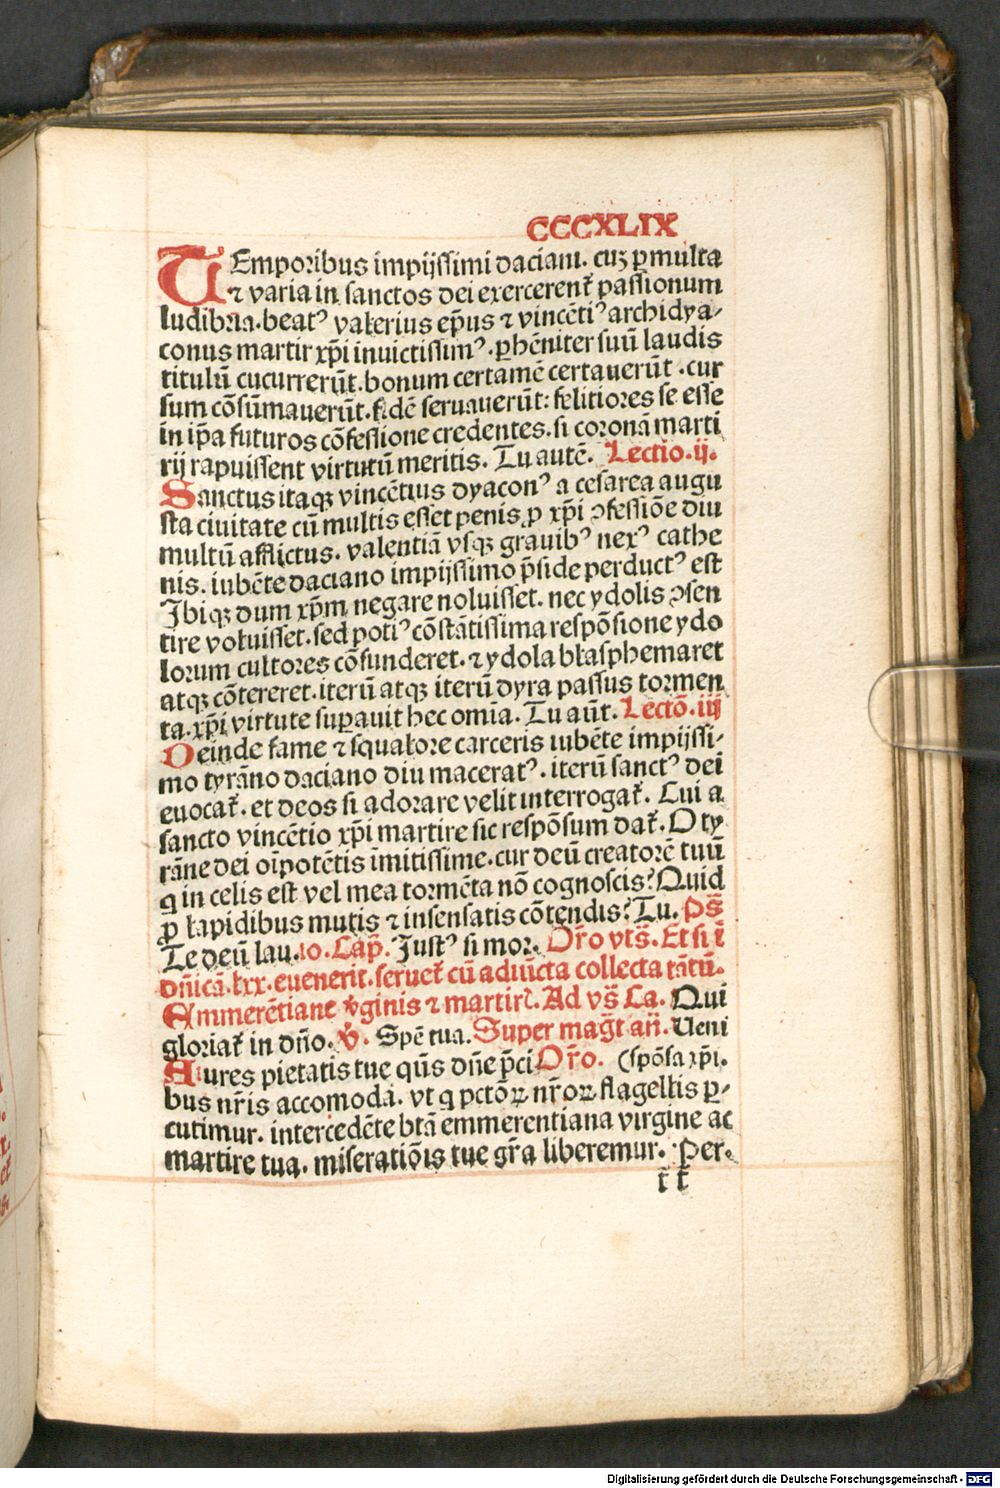 CCCXLIX
TEmporibus impijssimi daciani. cuꝫ ꝑ multa
⁊ varia in sanctos dei exercerent᷑ passionum
ludibria. beatꝰ valerius ep̃us ⁊ vincẽtiꝰ archidya-
conus martir xp̃i inuictissimꝰ. ꝑhẽniter suũ laudis
titulũ cucurrerũt. bonum certamẽ certauerũt. cur
sum cõsũmauerũt. fidẽ seruauerũt: felitiores se esse
in ip̃a futuros cõfessione credentes. si coronã marti
rij rapuissent virtutũ meritis. Tu autẽ. Lectio. ij.
Sanctus itaqꝫ vincẽtius dyaconꝰ a cesarea augu
sta ciuitate cũ multis esset penis ꝓ xp̃i ꝯfessiõe diu
multũ afflictus. valentiã vsqꝫ grauibꝰ nexꝰ cathe
nis. iubẽte daciano impijssimo p̃side perductꝰ est
Ibiqꝫ dum xp̃m negare noluisset. nec ydolis ꝯsen
tire voluisset. sed potiꝰ cõstãtissima respõsione ydo
lorum cultores cõfunderet. ⁊ ydola blasphemaret
atqꝫ cõtereret. iterũ atqꝫ iterũ dyra passus tormen
ta. xp̃i virtute suꝑauit hec om̃ia. Tu aũt. Lectõ. iij
Deinde fame ⁊ squalore carceris iubẽte impijssi-
mo tyrãno daciano diu maceratꝰ. iterũ sanctꝰ dei
euocat᷑. et deos si adorare velit interrogat᷑. Cui a
sancto vincẽtio xp̃i martire sic respõsum dat᷑. O ty
rãne dei oĩpotẽtis ĩmitissime. cur deũ creatorẽ tuũ
q in celis est vel mea tormẽta nõ cognoscis? Quid
ꝓ lapidibus mutis ⁊ insensatis cõtendis? Tu. Ps̃
Te deũ lau. io. Cap̃. Justꝰ si mor. Or̃o vts̃. Et si ĩ
dñicã. lxx. euenerit. seruet᷑ cũ adiũcta collecta tãtũ.
Emmerẽtiane v̾ginis ⁊ martir̃. Ad vs̃ Ca. Qui
gloriat᷑ in dño. v̾. Spẽ tua. Super mag̃t añ. Ueni
Aures pietatis tue qũs dñe p̃ci Or̃o. (spõsa xp̃i.
bus nr̃is accomoda. vt q pctõꝝ nr̃oꝝ flagellis ꝑ-
cutimur. intercedẽte btã emmerentiana virgine ac
martire tua. miseratiõis tue gr̃a liberemur. Per.